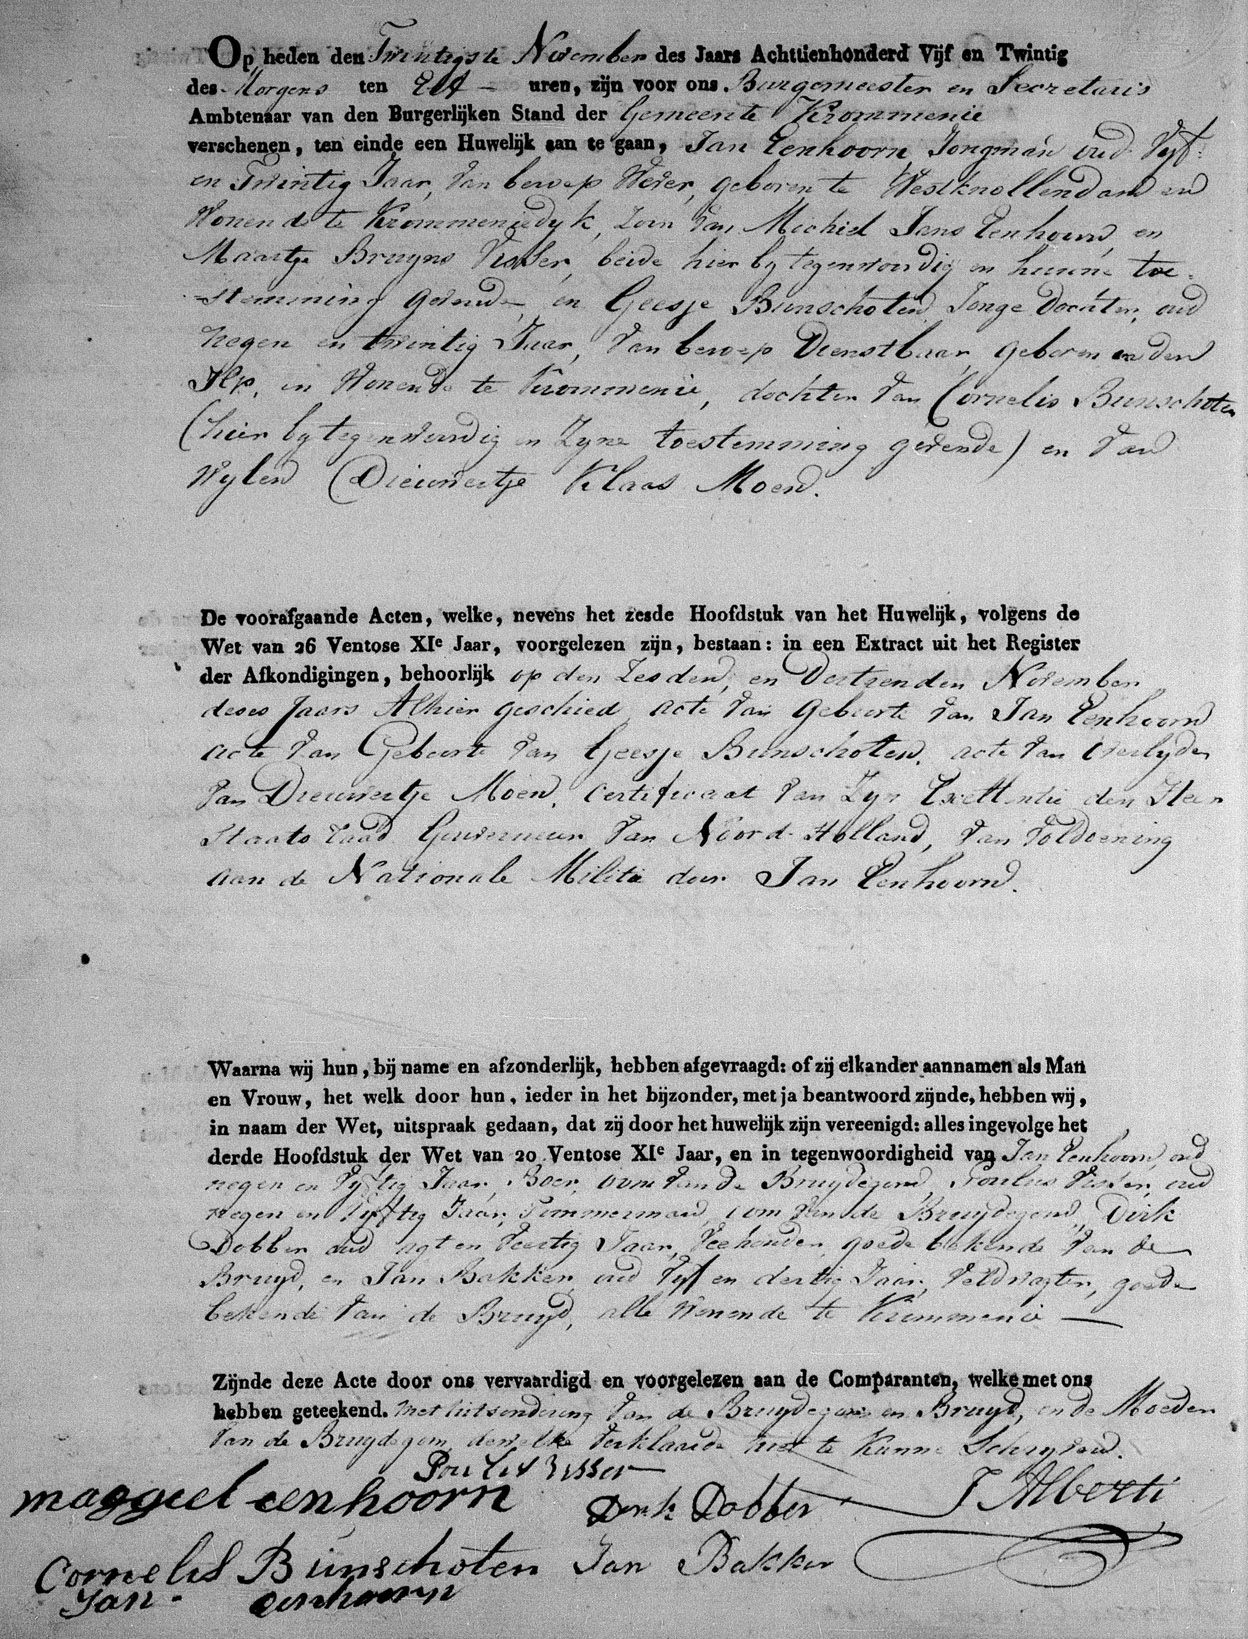 Op heden den Twintigste November des Jaars Achttienhonderd Vijf en Twintig
des Morgens ten Elf – uren, zijn voor ons Burgemeester en Secretaris
Ambtenaar van den Burgerlijken Stand der Gemeente Krommenie
verschenen, ten einde een Huwelijk aan te gaan, Jan Eenhoorn, Jongman oud Vyf
en Twintig Jaar, van beroep Wever, geboren te Westknollendam en
Wonende te Krommeniedyk, Zoon van Michiel Jans Eenhoorn, en
Maartje Bruyns Visser, beide hier by tegenwoordig en hunne toe-
stemming gevende, en Geesje Bunschoten Jonge Dochter, oud
negen en twintig Jaar, van beroep Dienstbaar, geboren aan den
Ilp, en Wonende te Krommenie, dochter van Cornelis Bunschoten
(hier by tegenwoordig en Zyne toestemming gevende) en van
Wylen Dieuwertje Klaas Moen.
De voorafgaande Acten, welke, nevens het zesde Hoofdstuk van het Huwelijk, volgens de
Wet van 26 Ventose XIe Jaar, voorgelezen zijn, bestaan: in een Extract uit het Register
der Afkondigingen, behoorlijk op den Zesden, en Dertienden November
deses Jaars Alhier geschied, acte van geboorte van Jan Eenhoorn
acte van Geboorte van Geesje Bunschoten, acte van overlyden
van Dieuwertje Moen, Certificaat van Zyn Excellentie den Heer
Staats raad Gouverneur van Noord-Holland, van voldoening
aan de Nationale Militie door Jan Eenhoorn.
Waarna wij hun, bij name en afzonderlijk, hebben afgevraagd: of zij elkander aannamen als Man
en Vrouw, het welk door hun, ieder in het bijzonder, met ja beantwoord zijnde, hebben wij,
in naam der Wet, uitspraak gedaan, dat zij door het huwelijk zijn vereenigd: alles ingevolge het
derde Hoofdstuk der Wet van 20 Ventose XIe Jaar, en in tegenwoordigheid van Jan Eenhoorn, oud
negen en vyftig Jaar, Boer, oom van de Bruydegom, Poulus Visser, oud
negen en vyftig Jaar, Timmerman, oom van de Bruydegom, Dirk
Dobber oud agt en Veertig Jaar, Veehouder, goede bekende van de
Bruyd, en Jan Bakker, oud vyf en dertig Jaar, Veldwagter, goede
bekende van de Bruyd, alle Wonende te Krommenie —
Zijnde deze Acte door ons vervaardigd en voorgelezen aan de Comparanten, welke met ons
hebben geteekend. Met uitsondering van de Bruydegom en Bruyd, en de Moeder
van de Bruydegom, dewelke verklaarde niet te Kunne Schryven.
Poulus Visser
maggiel eenhoorn
Derk Dobber
J Alberti
Cornelis Bunschoten
Jan Bakker
Jan eenhoorn